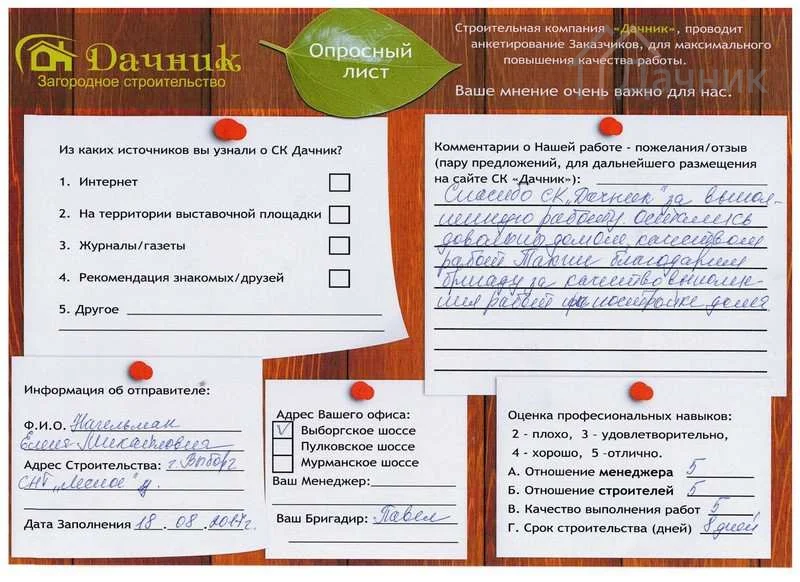 Дачник
Загородное строительство
Опросный
лист
Строительная компания «Дачник», проводит
анкетирование Заказчиков, для максимального
повышения качества работы.
Ваше мнение очень важно для нас.
Дачник
Из каких источников вы узнали о СК Дачник?
1. Интернет
2. На территории выставочной площадки
3. Журналы/газеты
4. Рекомендация знакомых/друзей
5. Другое
Комментарии о Нашей работе - пожелания/отзыв
(пару предложений, для дальнейшего размещения
на сайте СК «Дачник»):
Спасибо СК „Дачник" за выпол-
ненную работу. Остались
довольны домом, качеством
работ. Также благодарим
бригаду за качество выполне-
ния работ при постройке дома
Информация об отправителе:
Ф.И.О. Нагельман
Елена Михайловна
Адрес Строительства: г. Выборг
СНТ „Лесное"
Дата Заполнения 18.08.2017г.
Адрес Вашего офиса:
V Выборгское шоссе
Пулковское шоссе
Мурманское шоссе
Ваш Менеджер:
Ваш Бригадир: Павел
Оценка профессиональных навыков:
2 - плохо, 3 - удовлетворительно,
4 - хорошо, 5 -отлично.
А. Отношение менеджера 5
Б. Отношение строителей 5
В. Качество выполнения работ 5
Г. Срок строительства (дней) 8 дней